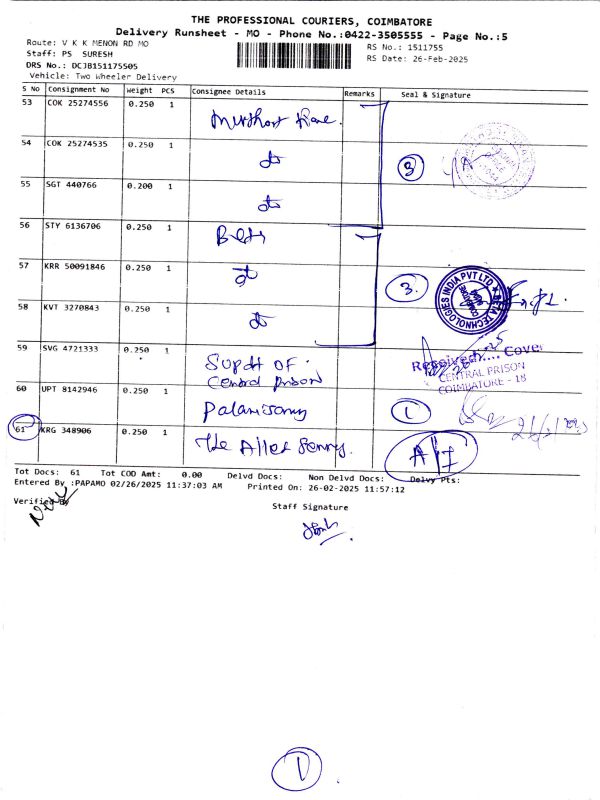 THE PROFESSIONAL COURIERS, COIMBATORE
Delivery Runsheet - MO - Phone No.:0422-3505555 - Page No.:5
Route: V K K MENON RD MO
RS No.: 1511755
Staff: PS SURESH
RS Date: 26-Feb-2025
DRS No.: DCJB151175505
Vehicle: Two Wheeler Delivery
S No Consignment No Weight PCS Consignee Details Remarks Seal & Signature
53 COK 25274556 0.250 1
54 COK 25274535 0.250 1 do
55 SGT 440766 0.200 1 do
3
56 STY 6136706 0.250 1
57 KRR 50091846 0.250 1 do
58 KVT 3270843 0.250 1 do
3.
BETA TECHNOLOGIES INDIA PVT LTD
59 SVG 4721333 0.250 1 Supdt of
Central Prison
Received.... Cover
CENTRAL PRISON
COIMBATORE - 18
60 UPT 8142946 0.250 1 Palanisamy
1
61 KRG 348906 0.250 1
Tot Docs: 61 Tot COD Amt: 0.00 Delvd Docs: Non Delvd Docs: Delvy Pts:
Entered By :PAPAMO 02/26/2025 11:37:03 AM Printed On: 26-02-2025 11:57:12
Verified By
Staff Signature
1